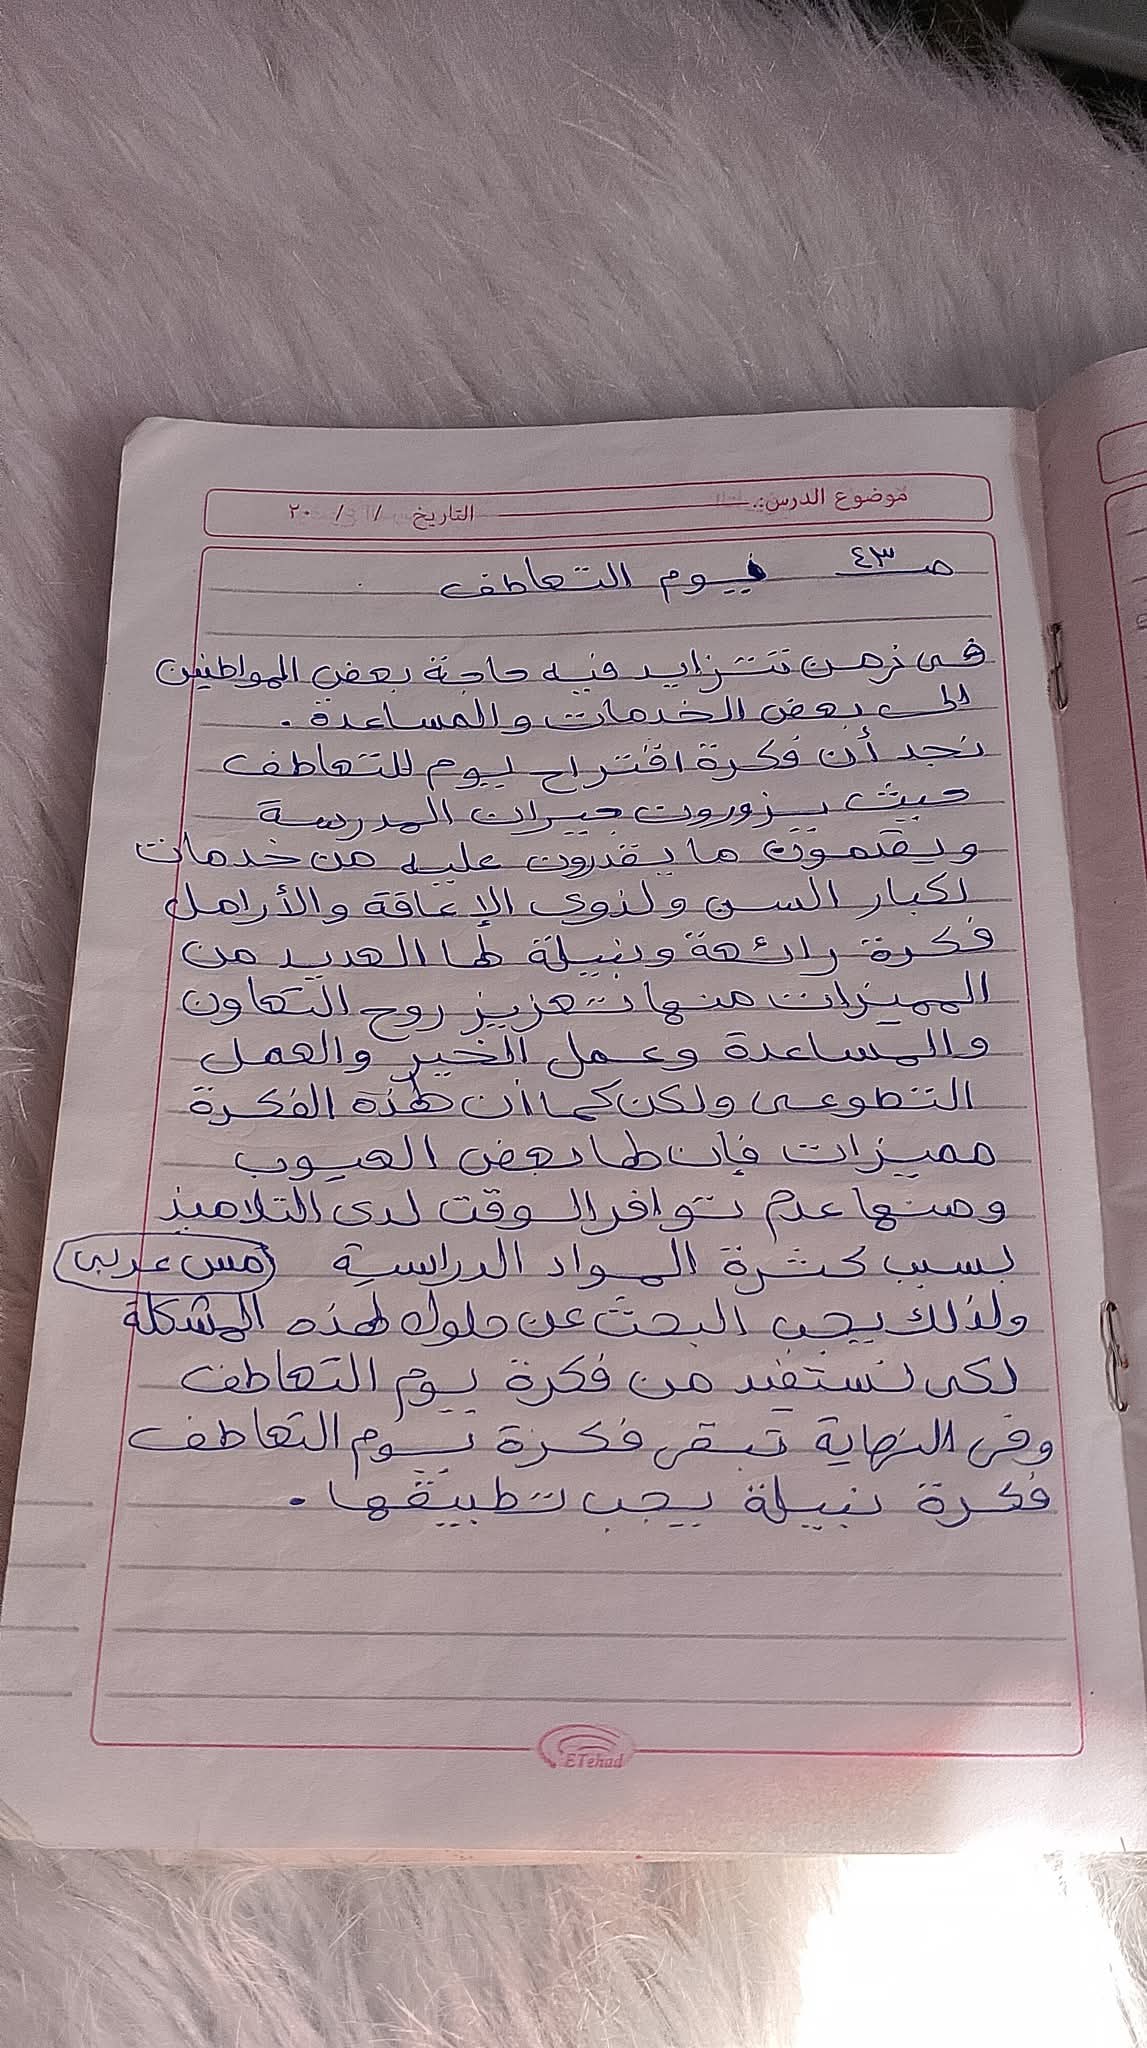 موضوع الدرس: التاريخ / / ٢٠
صـ ٤٣ يوم التعاطف
فى زمن تتزايد فيه حاجة بعض المواطنين
الى بعض الخدمات والمساعدة .
نجد أن فكرة اقتراح يوم للتعاطف
حيث يزورون جيران المدرسة
ويقدمون ما يقدرون عليه من خدمات
لكبار السن ولذوى الإعاقة والأرامل
فكرة رائعة ونبيلة لها العديد من
المميزات منها تعزيز روح التعاون
والمساعدة وعمل الخير والعمل
التطوعى ولكن كما أن لهذه الفكرة
مميزات فإن لها بعض العيوب
ومنها عدم توافر الوقت لدى التلاميذ
بسبب كثرة المواد الدراسية (مس عربى)
ولذلك يجب البحث عن حلول لهذه المشكلة
لكى نستفيد من فكرة يوم التعاطف
وفى النهاية تبقى فكرة يوم التعاطف
فكرة نبيلة يجب تطبيقها .
ETehad